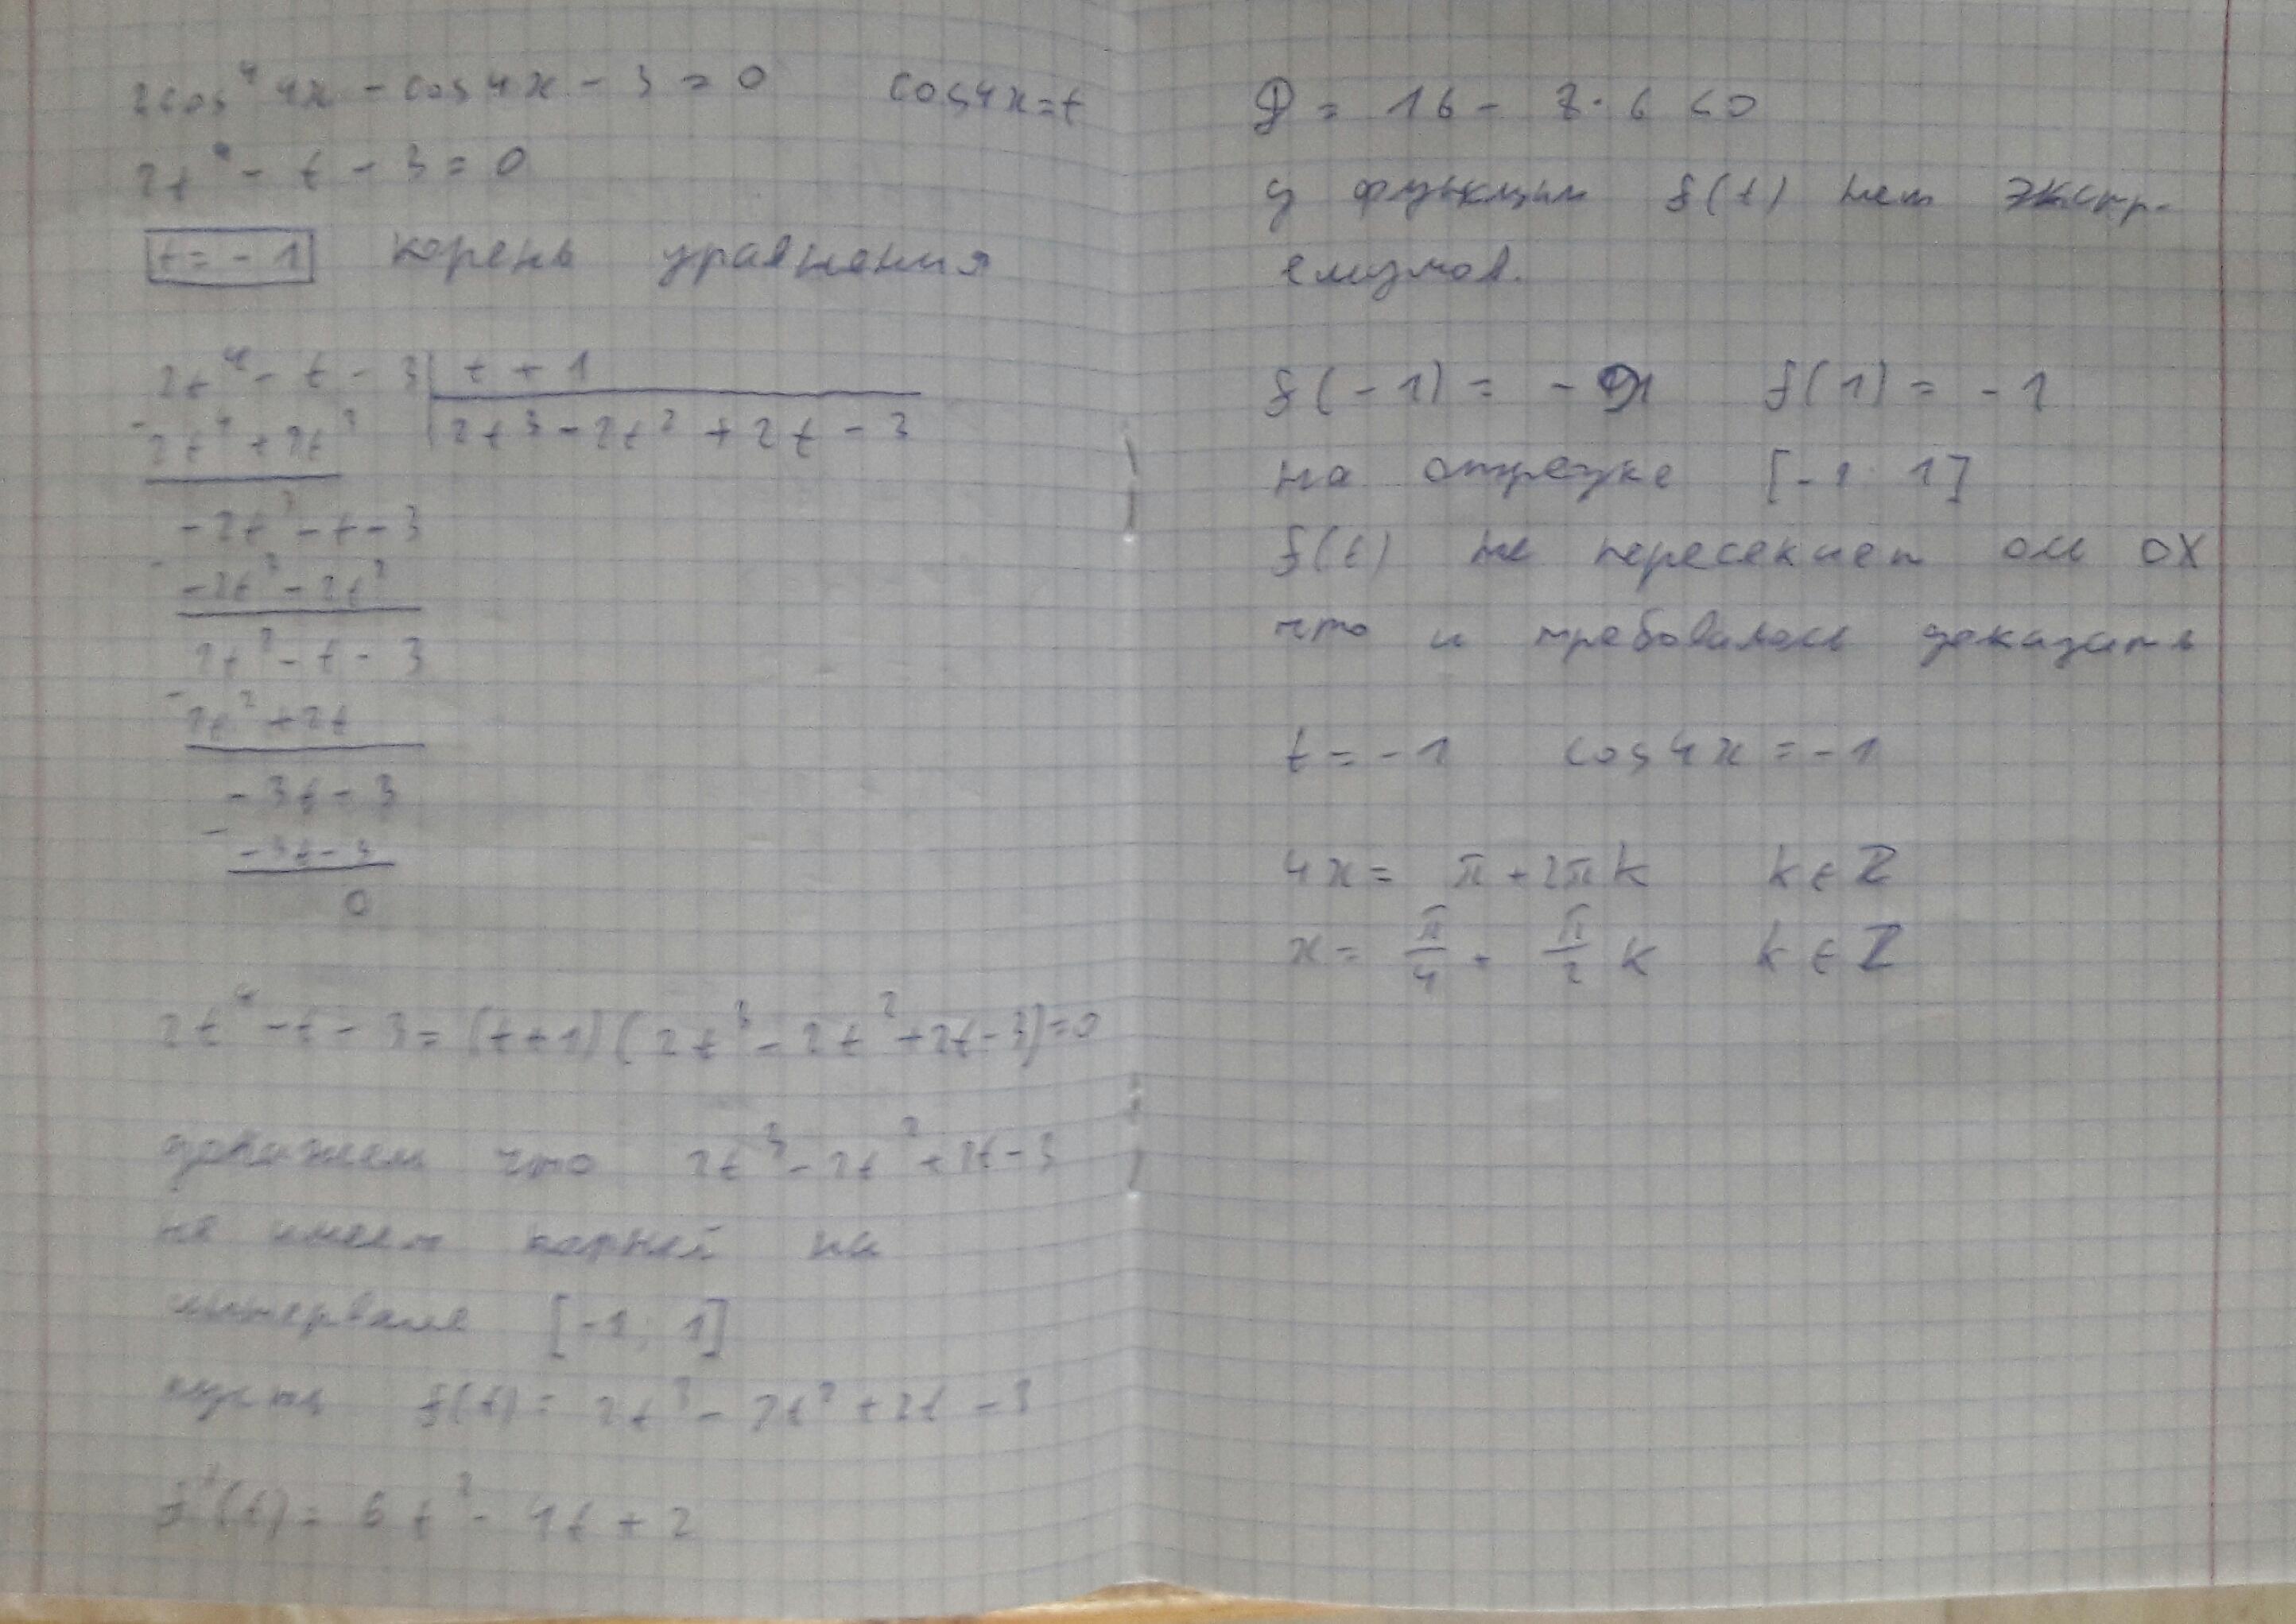 2cos⁴4x - cos4x - 3 = 0 cos4x=t
2t⁴ - t - 3 = 0
t = -1 корень уравнения
2t⁴ - t - 3 | t + 1
- 2t⁴ + 2t³ 2t³ - 2t² + 2t - 3
-2t³ - t - 3
- -2t³ - 2t²
2t² - t - 3
- 2t² + 2t
-3t - 3
- -3t - 3
0
2t⁴ - t - 3 = (t+1)(2t³ - 2t² + 2t - 3) = 0
докажем что 2t³ - 2t² + 2t - 3
не имеет корней на
интервале [-1; 1]
пусть f(t) = 2t³ - 2t² + 2t - 3
f'(t) = 6t² - 4t + 2
D = 16 - 8·6 < 0
у функции f(t) нет экстр-
емумов.
f(-1) = - f(1) = -1
на отрезке [-1 1]
f(t) не пересекает ось OX
что и требовалось доказать
t = -1 cos4x = -1
4x = π + 2πk k ∈ Z
x = π/4 + π/2 k k ∈ Z